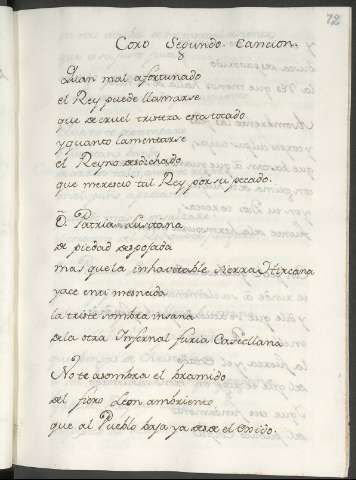 72
Coro Segundo. Cancion.
Quan mal afortunado
el Rey puede llamarse
que de cruel tristeza esta tocado
y quanto lamentarse
el Reyno desdichado
que merescio tal Rey por su pecado.
O Patria Lusitana
de piedad despojada
mas que la inhavitable sierra Hircana
yace en ti mesnada
la triste sombra insana
de la otra Infernal furia Castellana
No te asombra el bramido
del fiero Leon ambriento
que al Pueblo baja ya desde el Exido.